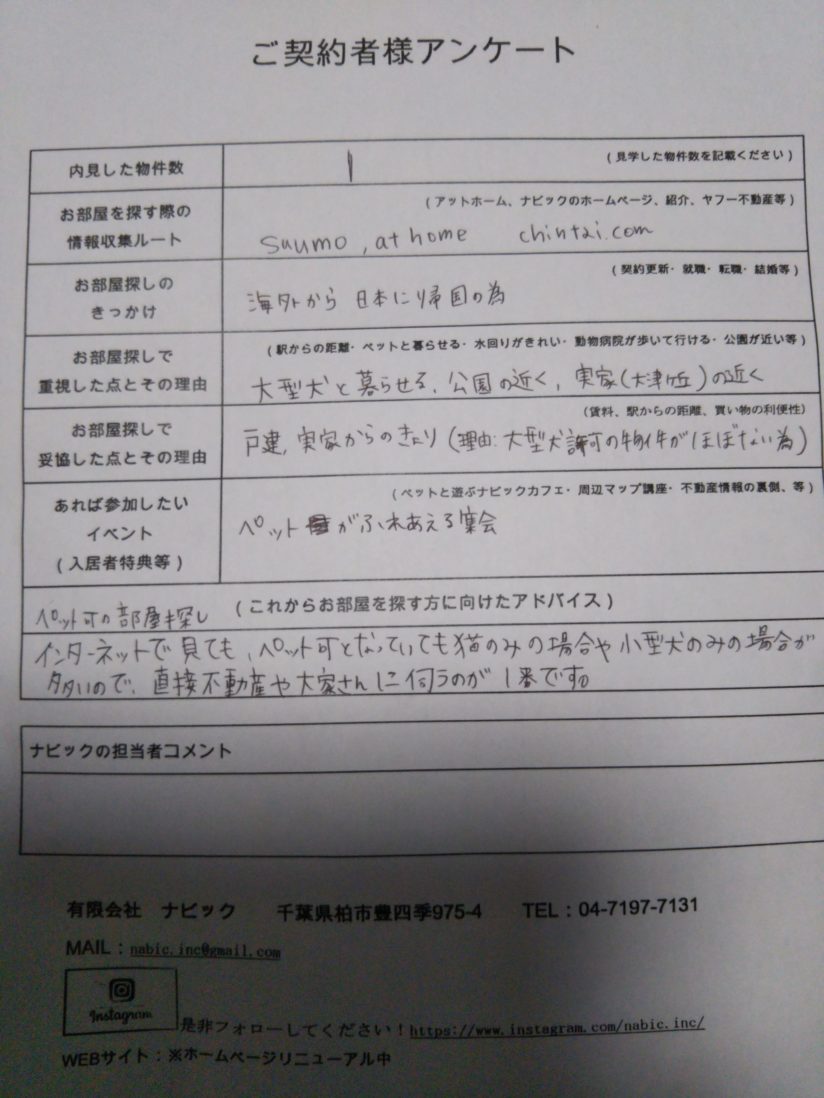 ご契約者様アンケート
内見した物件数
1
(見学した物件数を記載ください)
お部屋を探す際の
情報収集ルート
(アットホーム、ナビックのホームページ、紹介、ヤフー不動産等)
suumo, at home chintai.com
お部屋探しの
きっかけ
(契約更新・就職・転職・結婚等)
海外から日本に帰国の為
お部屋探しで
重視した点とその理由
(駅からの距離・ペットと暮らせる・水回りがきれい・動物病院が歩いて行ける・公園が近い等)
大型犬と暮らせる、公園の近く、実家(大津ヶ丘)の近く
お部屋探しで
妥協した点とその理由
(賃料、駅からの距離、買い物の利便性)
戸建、実家からのきょり(理由:大型犬許可の物件がほぼない為)
あれば参加したい
イベント
(入居者特典等)
(ペットと遊ぶナビックカフェ・周辺マップ講座・不動産情報の裏側、等)
ペットがふれあえる宴会
ペット可の部屋探し (これからお部屋を探す方に向けたアドバイス)
インターネットで見ても、ペット可となっていても猫のみの場合や小型犬のみの場合が
多いので、直接不動産や大家さんに伺うのが1番です。
ナビックの担当者コメント
有限会社 ナビック 千葉県柏市豊四季975-4 TEL:04-7197-7131
MAIL:nabic.inc@gmail.com
Instagram
是非フォローしてください!https://www.instagram.com/nabic.inc/
WEBサイト:※ホームページリニューアル中